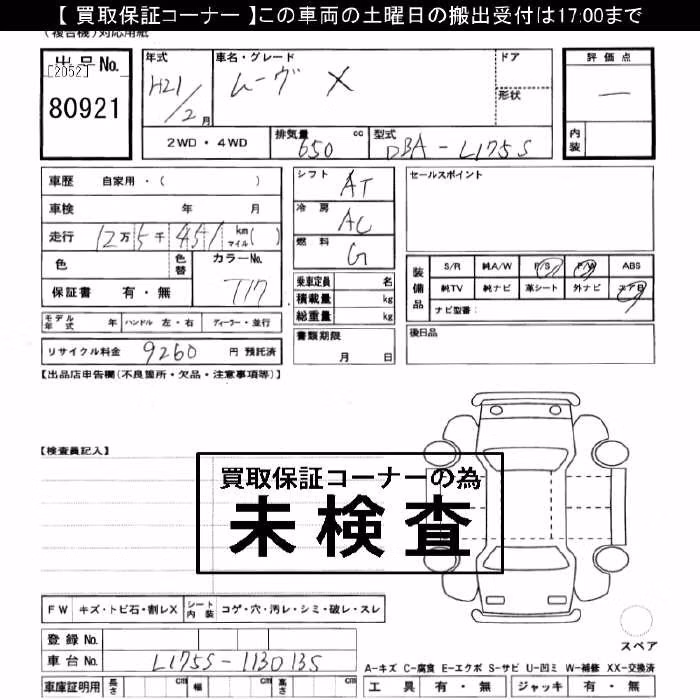 【 買取保証コーナー 】この車両の土曜日の搬出受付は17:00まで
(複合機)対応用紙
出品No.
[2052]
80921
年式
H21/2月
車名・グレード
ムーヴ X
ドア
形状
評価点
—
内装
2WD・4WD
排気量 650 cc
型式 DBA-L175S
車歴 自家用・( )
車検 年 月
走行 12万5千451 km マイル( )
色
色替
カラーNo.
T17
保証書 有・無
モデル年式 年 ハンドル 左・右 ディーラー・並行
リサイクル料金 9260 円 預託済
シフト AT
冷房 AC
燃料 G
乗車定員 名
積載量 kg
総重量 kg
書類期限
月 日
セールスポイント
装備品
S/R 純A/W P/S P/W ABS
純TV 純ナビ 革シート 外ナビ エアB
ナビ型番:
後日品
【出品店申告欄(不良箇所・欠品・注意事項等)】
【検査員記入】
買取保証コーナーの為
未検査
FW キズ・トビ石・割レX
シート内装 コゲ・穴・汚レ・シミ・破レ・スレ
登録No.
車台No. L175S-1130135
車庫証明用 長さ cm 幅 cm 高さ cm
スペア
A-キズ C-腐食 E-エクボ S-サビ U-凹ミ W-補修 XX-交換済
工具 有・無 ジャッキ 有・無